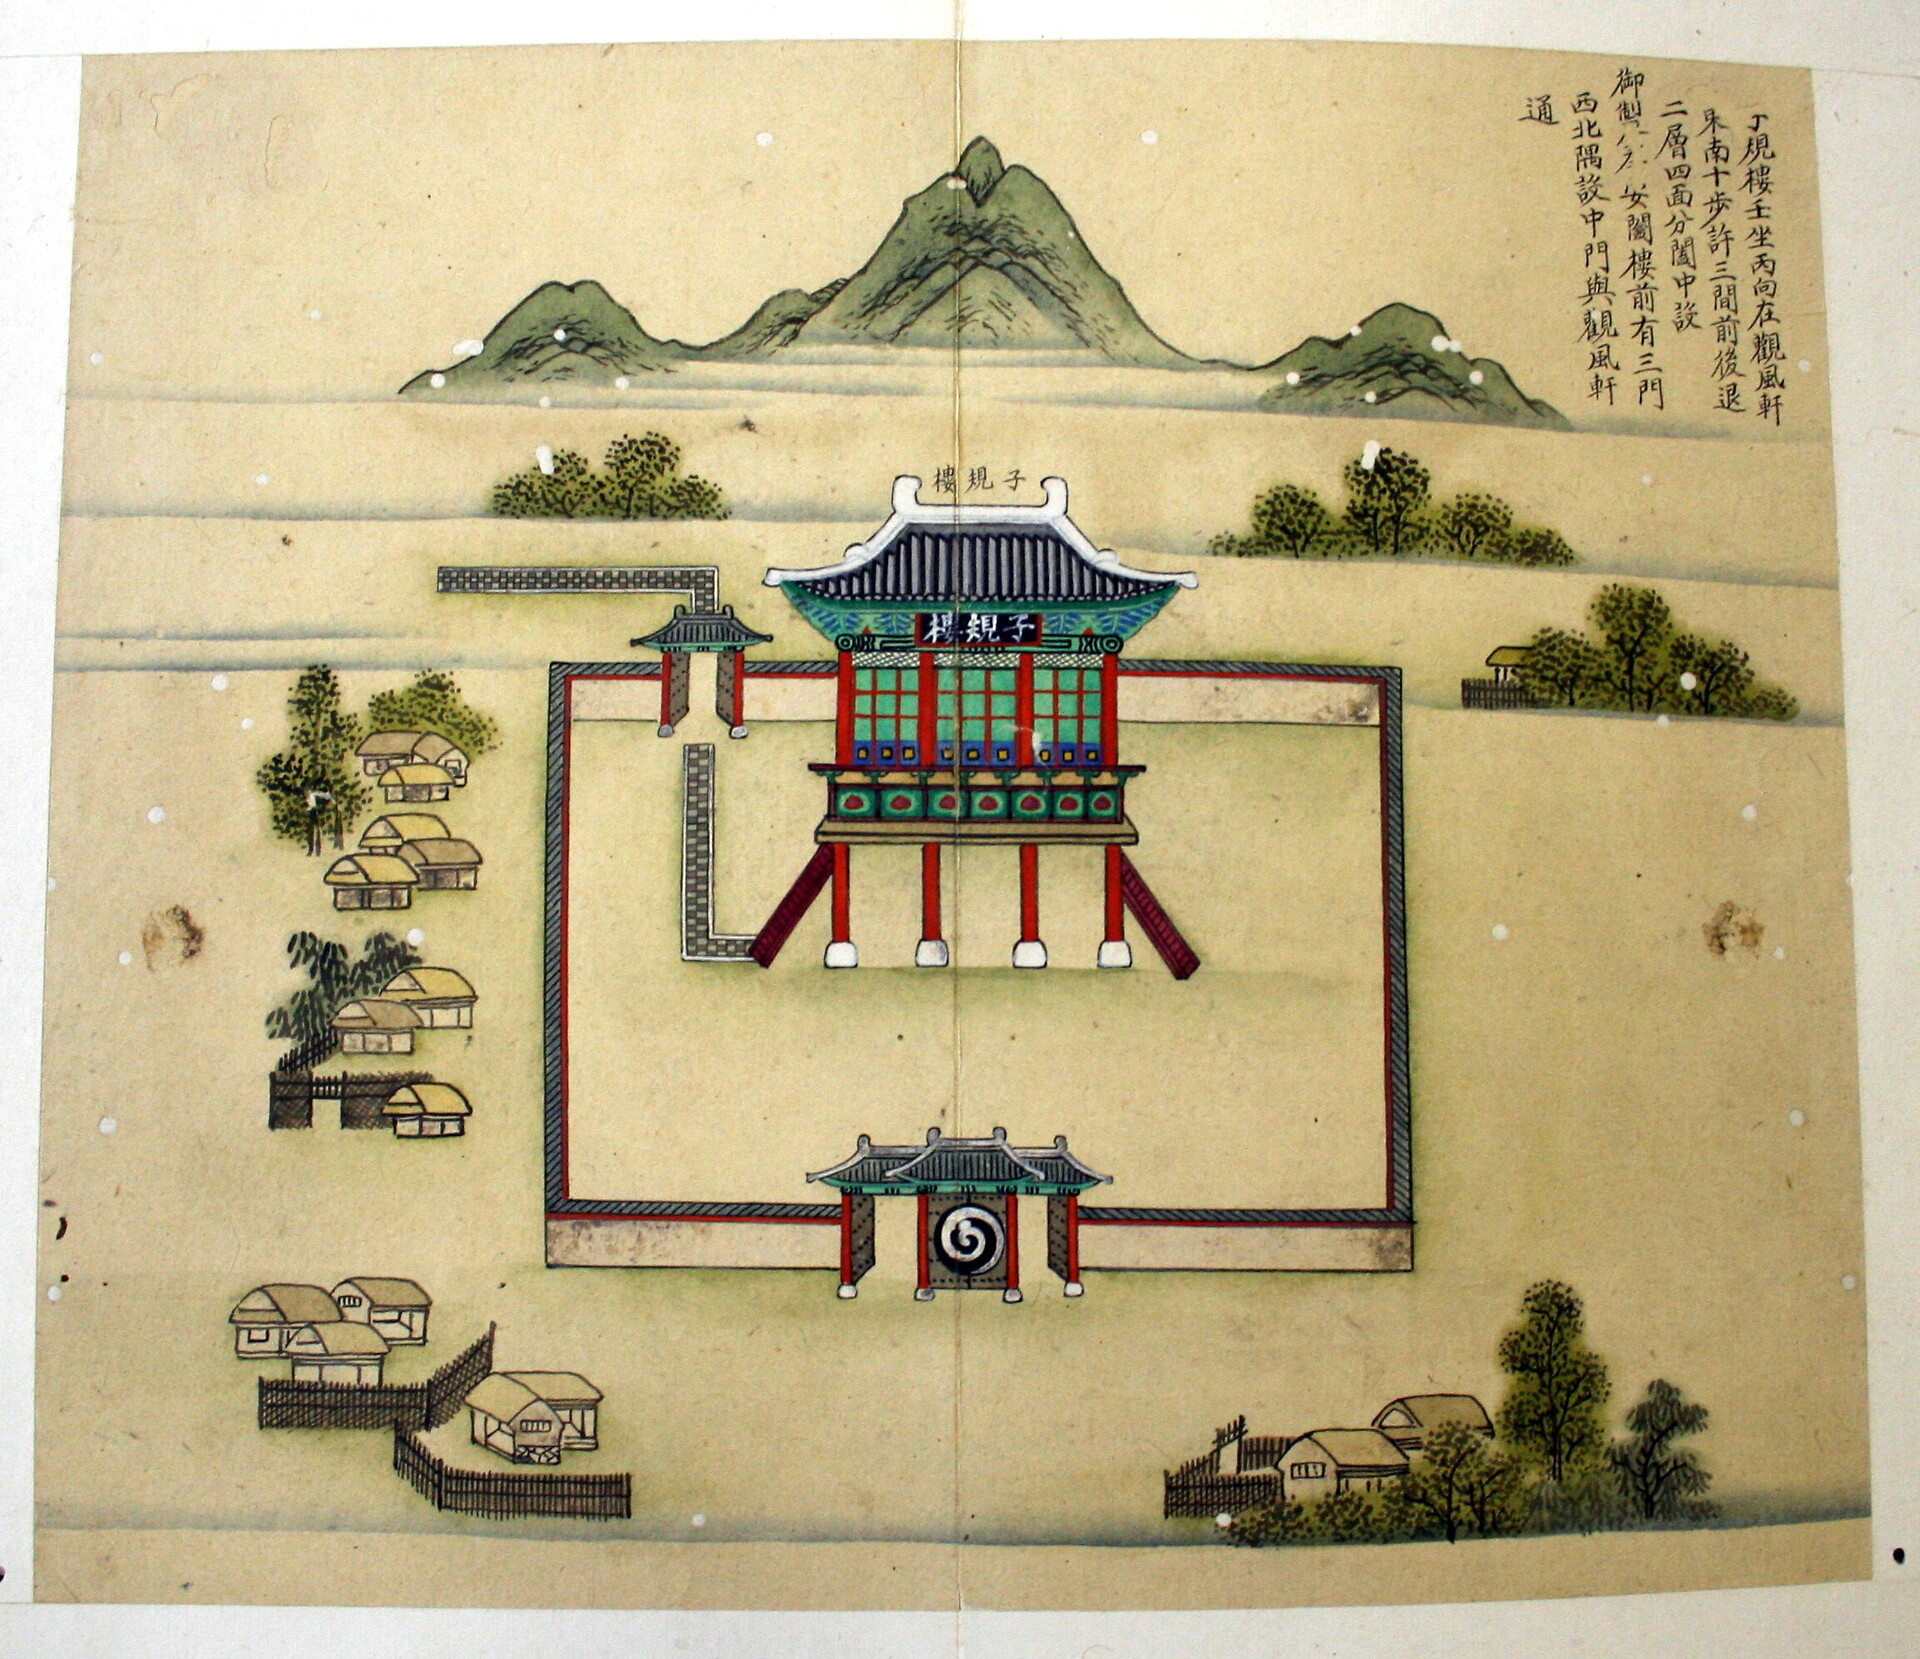 子規樓壬坐丙向在觀風軒
東南十步許三間前後退
二層四面分閤中設
御製 安閣樓前有三門
西北隅設中門與觀風軒
通
子規樓
子規樓